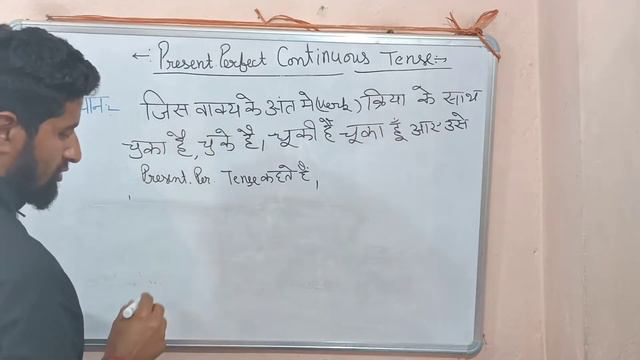 Present Perfect Continuous Tense:-
जिस वाक्य के अंत मे (verb) क्रिया के साथ
चुका है, चुके है। चूकी हैं चूका हूँ आए उसे
Present. Per. Tense कहते हैं,